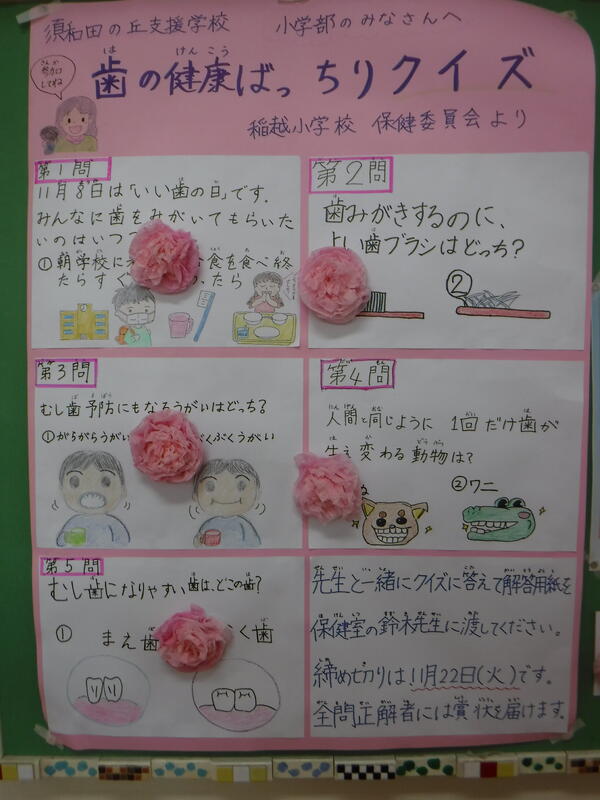 須和田の丘支援学校 小学部のみなさんへ
さんか
参加
してね
は けんこう
歯の健康ばっちりクイズ
稲越小学校 保健委員会より
第1問
11月8日は「いい歯の日」です。
みんなに歯をみがいてもらいた
いのはいつ
①朝学校に 食を食べ終
たらす たら
第2問
歯みがきするのに、
よい歯ブラシはどっち?
②
第3問
むし歯予防にもなるうがいはどっち?
①がらがらうがい くぶくうがい
第4問
人間と同じように 1回だけ歯が
生え変わる動物は?
②ワニ
第5問
むし歯になりやすい歯は、どこの歯?
① まえ歯 く歯
先生と一緒にクイズに答えて解答用紙を
保健室の鈴木先生に渡してください。
締め切りは11月22日(火)です。
全問正解者には賞状を届けます。